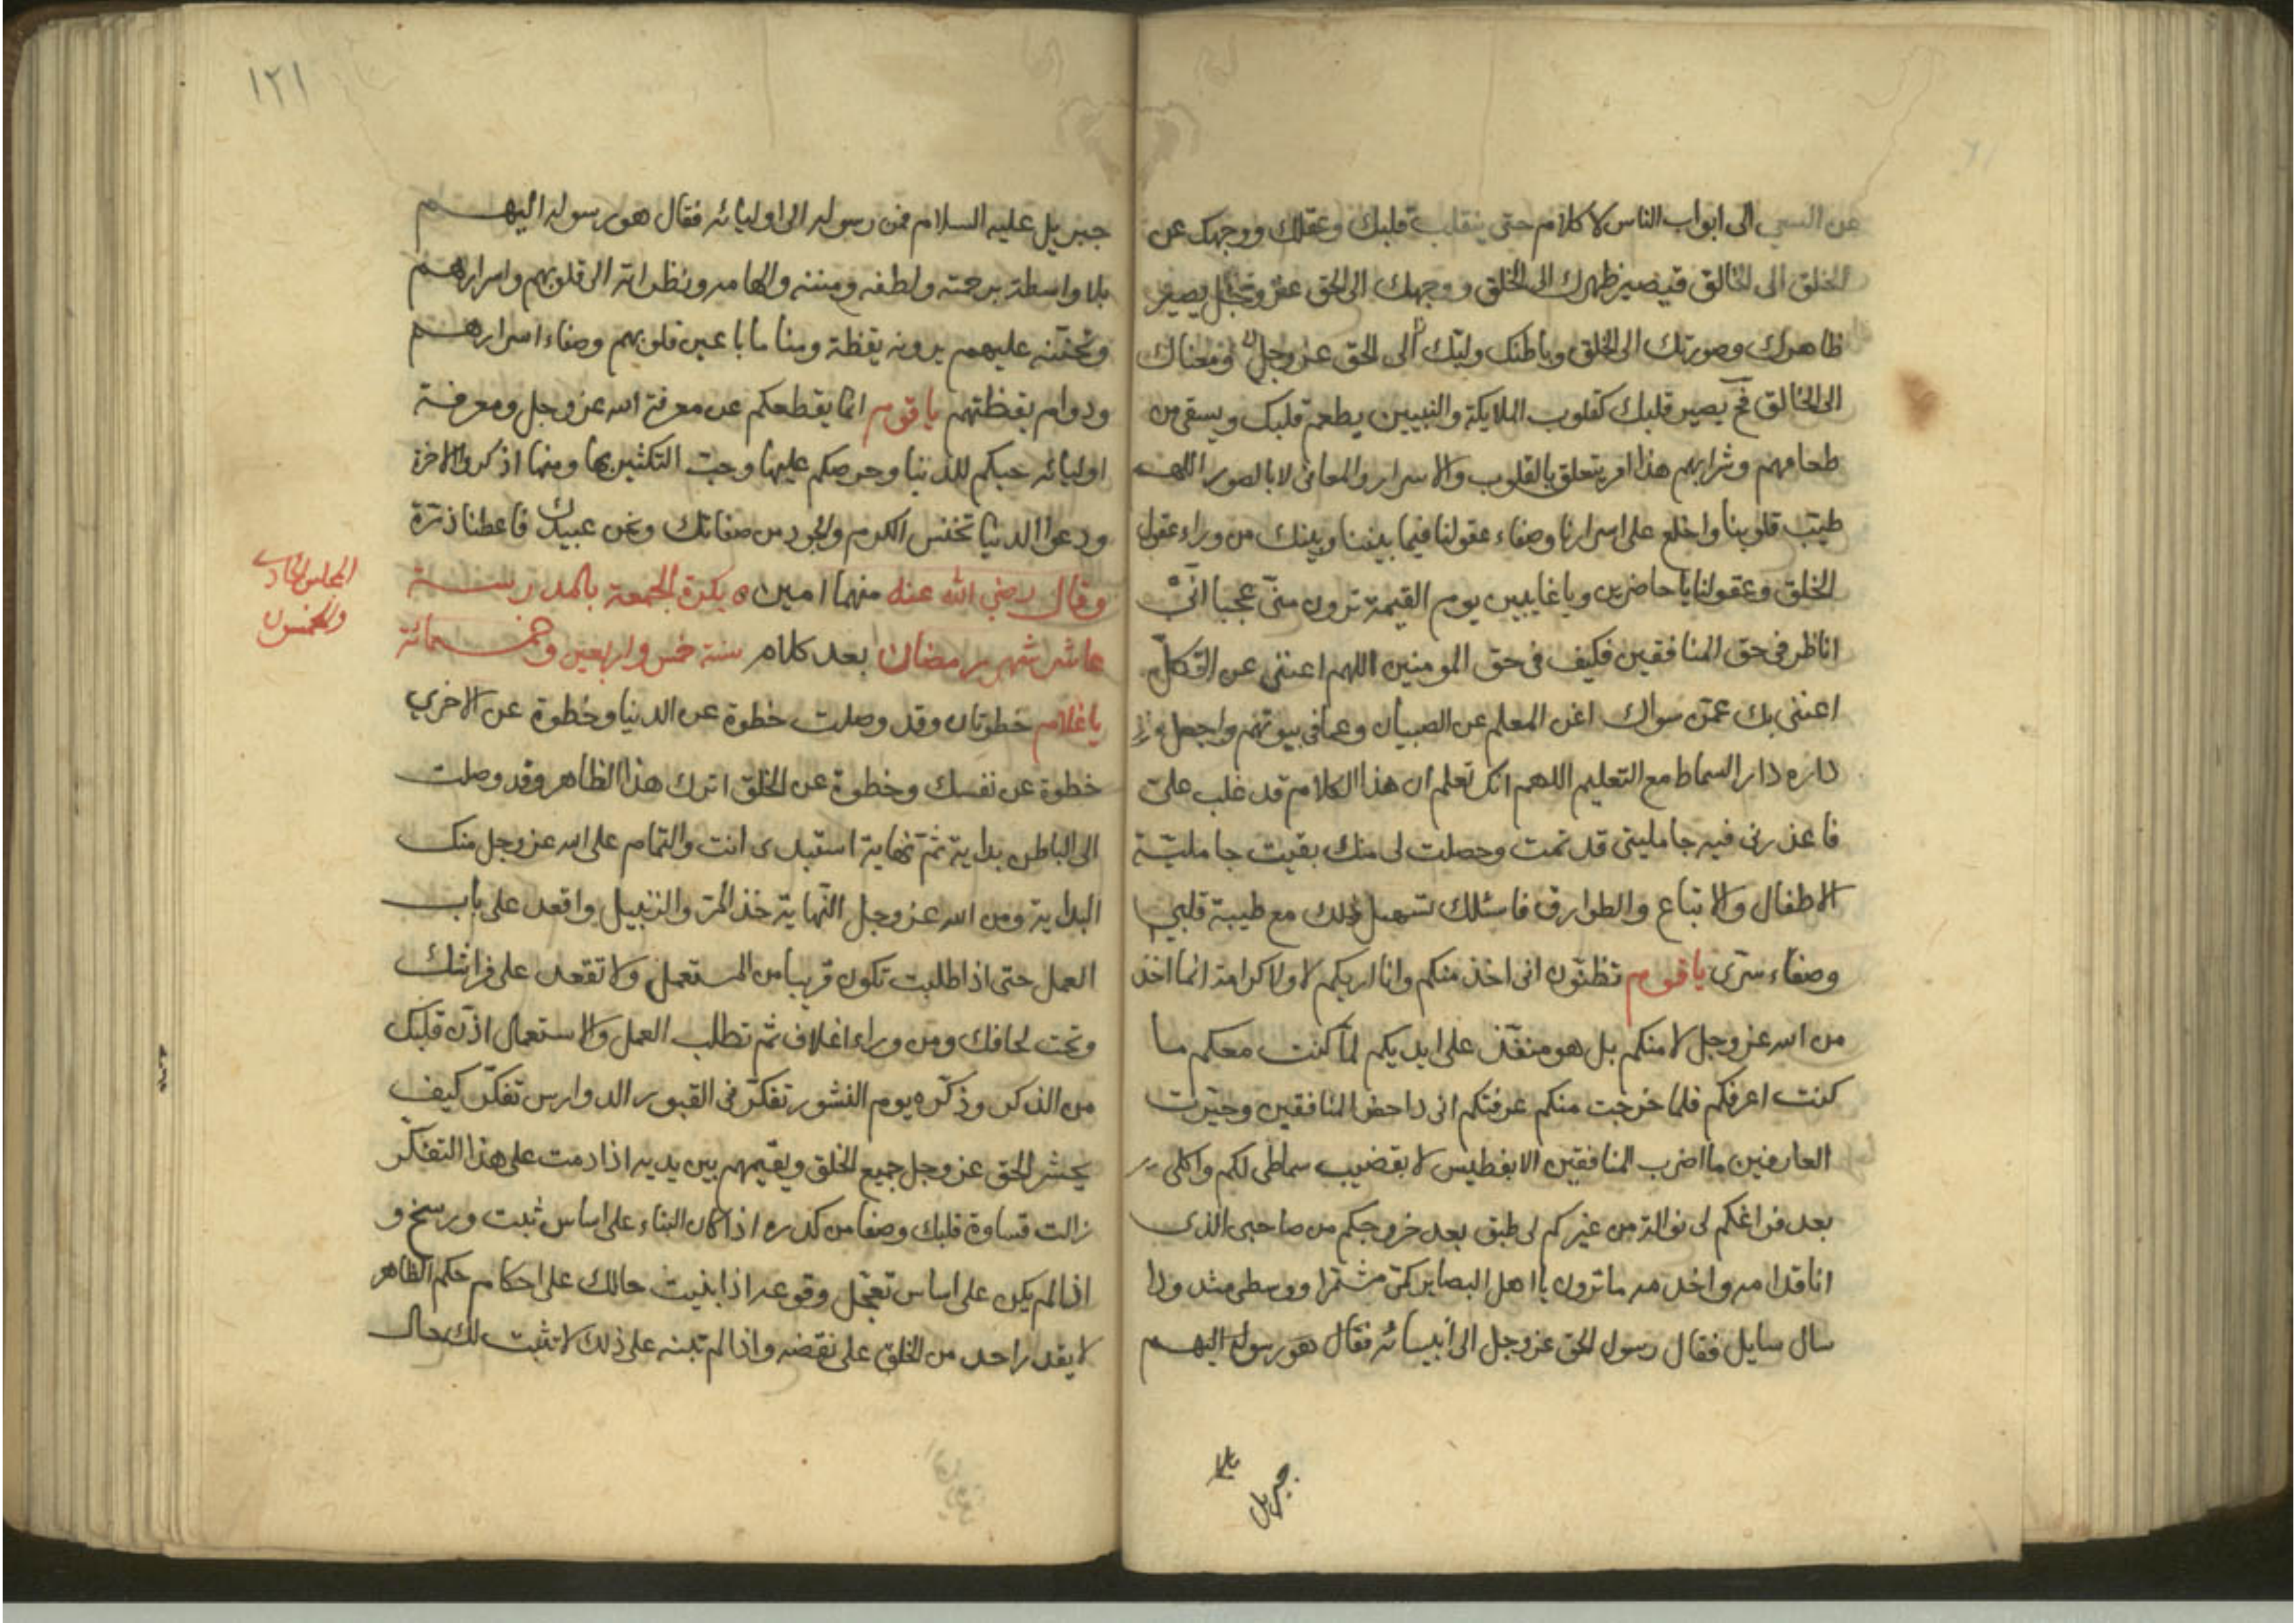 عن السعي الى ابواب الناس لا كلام حتى ينقلب قلبك وعقلك ووجهك عن
الخلق الى الخالق فيصير ظهرك الى الخلق ووجهك الى الحق عز وجل يصير
ظاهرك وصورتك الى الخلق وباطنك ولبك الى الحق عز وجل ومعناك
الى الخالق فح يصير قلبك كقلوب الملايكة والنبيين يطعم قلبك ويسقى من
طعامهم وشرابهم هذا امر يتعلق بالقلوب والاسرار والمعانى لا بالصور اللهم
طيب قلوبنا واخلع على اسرارنا وصفاء عقولنا فيما بيننا وبينك من وراء عقول
الخلق وعقولنا يا حاضرين ويا غايبين يوم القيمة ترون منى عجبا انى
اناظر فى حق المنافقين فكيف فى حق المومنين اللهم اعننى عن الكل
اعننى بك عمن سواك اغن المعلم عن الصبيان وعما فى بيوتهم واجعل
داره دار السماط مع التعليم اللهم انك تعلم ان هذا الكلام قد غلب على
فاعذرنى فيه جامليتى قد تمت وحصلت لى منك بقيت جاملية
الاطفال والاتباع والطوارق فاسئلك تسهيل ذلك مع طيبة قلبى
وصفاء سرى يا قوم تظنون انى اخذ منكم وانا اريكم لا ولا كرامة انما اخذ
من الله عز وجل لا منكم بل هو منفذ على ايديكم لما كنت معكم ما
كنت اعرفكم فلما خرجت منكم عرفتكم انى داحض المنافقين وحيرت
العارفين ما اضرب المنافقين الا بفطيس لا بقضيب سماطى لكم واكلى
بعد فراغكم لى نوالة من غيركم لى طبق بعد خروجكم من صاحبى الذى
انا قدامه واخدمه ما ترون يا اهل البصاير كمى مشمرا ووسطى مشدودا
سال سايل فقال رسول الحق عز وجل الى انبيائه فقال هو رسوله اليهم
جبريل
١٢١
جبريل عليه السلام فمن رسوله الى اوليائه فقال هو رسوله اليهم
بلا واسطة برحمته ولطفه ومننه والهامه ونظراته الى قلوبهم واسرارهم
وتحننه عليهم يرونه يقظة ومناما باعين قلوبهم وصفاء اسرارهم
ودوام يقظتهم يا قوم انما يقطعكم عن معرفة الله عز وجل ومعرفة
اوليائه حبكم للدنيا وحرصكم عليها وحب التكثير بها ومنها اذكروا الاخرة
ودعوا الدنيا تخنس الكرم والجود من صفاتك ونحن عبيدك فاعطنا ذرة
وقال رضي الله عنه منهما امين بكرة الجمعة بالمدرسة
المجلس الحادى
والخمسون
عاشر شهر رمضان بعد كلام سنة خمس واربعين وخمسمائة
يا غلام خطوتان وقد وصلت خطوة عن الدنيا وخطوة عن الاخرى
خطوة عن نفسك وخطوة عن الخلق اترك هذا الظاهر وقد وصلت
الى الباطن بداية ثم نهاية استبدى انت والتمام على الله عز وجل منك
البداية ومن الله عز وجل النهاية خذ المر والزنبيل واقعد على باب
العمل حتى اذا طلبت تكون قريبا من المستعمل ولا تقعد على فراشك
وتحت لحافك ومن وراء اغلاف ثم تطلب العمل والاستعمال اذن قلبك
من الذكر وذكره يوم النشور تفكر فى القبور الدوارس تفكر كيف
يحشر الحق عز وجل جميع الخلق ويقيمهم بين يديه اذا دمت على هذا التفكر
زالت قساوة قلبك وصفا من كدره اذا كان البناء على اساس ثبت ورسخ و
اذا لم يكن على اساس تعجل وقوعه اذا بنيت حالك على احكام حكم الظاهر
لا يقدر احد من الخلق على نقضه واذا لم تبنه على ذلك لا تثبت لك حال